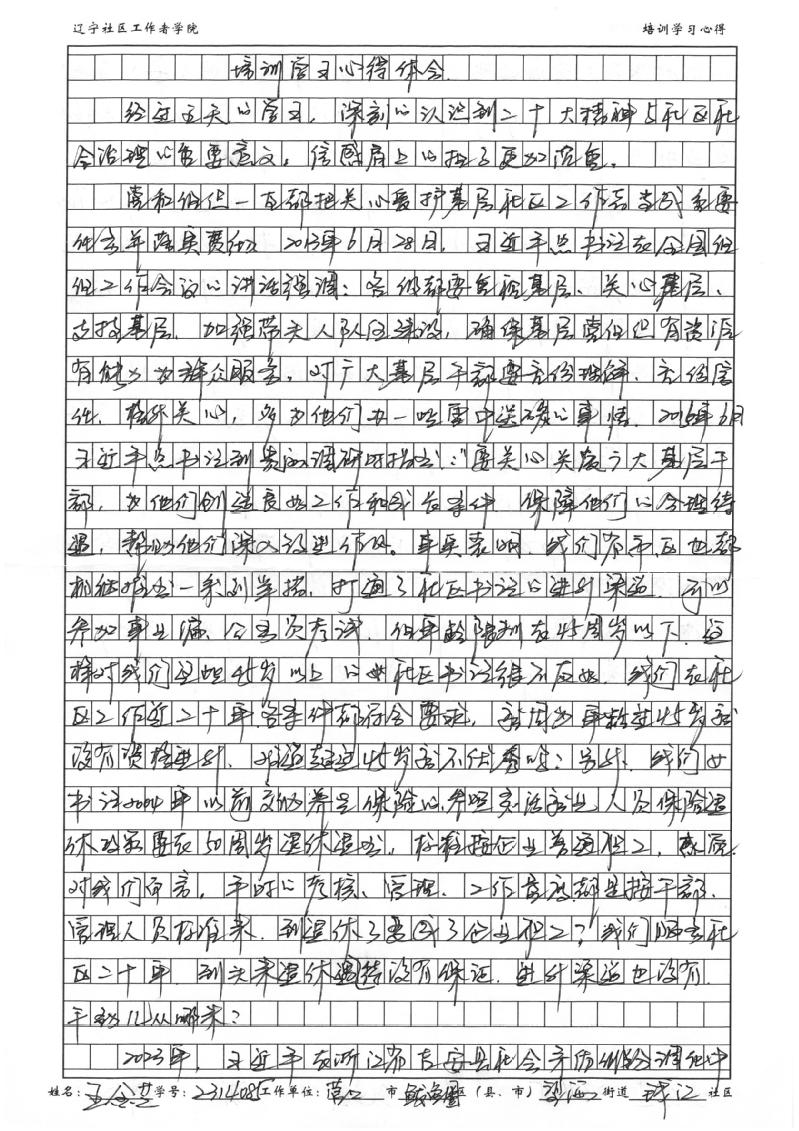 辽宁社区工作者学院 培训学习心得
培训学习心得体会
经过五天的学习，深刻的认识到二十大精神与社区社
会治理的重要意义。信感肩上的担子更加沉重。
党和一直都把关心爱护基层社区工作者当成重要
任务并落实。2013年6月28日，习近平总书记在全国组
织工作会议的讲话强调：各级都要重视基层、关心基层、
支持基层，加强带头人队伍建设，确保基层党组织有资源
有能力为群众服务。对广大基层干部要充份理解、充份信
任，格外关心，多为他们办一些雪中送碳的事情。2015年6月
习近平总书记到贵州调研时指出：“要关心关爱广大基层干
部，为他们创造良好工作和成长条件，保障他们的合理待
遇，帮助他们深入改进作风。事实表明，我们省市区也都
相继推出一系列举措，打通了社区书记的进升渠道，可以
参加事业编、公务员考试，但年龄限制在45周岁以下，这
样对我们这些45岁以上的女社区书记很不友好，我们在社
区工作近二十年各条件都符合要求，就因为年龄过45岁就
没有资格进升，难道超过45岁就不优秀吗？另外，我们女
书记2004年以前交的养老保险的，参照灵活就业人员保险退
休政策要在50周岁退休退出，标准按企业普通职工，
对我们而言，平时的考核、管理、工作首应都是按干部、
管理人员标准来，到退休了要回了企业职工？我们服务社
区二十年，到头来退休退待遇没有保证，进升渠道也没有，
平衡从哪来？
2023年，习近平在浙江省
姓名： 学号：2314085 工作单位：营口 市 鲅鱼圈区（县、市） 海 街道 社区